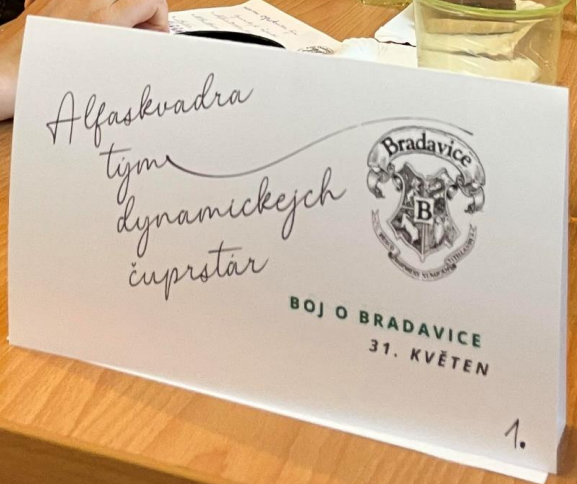 Alfaskvadra
tým
dynamickejch
čuprstár
Bradavice
B
BOJ O BRADAVICE
31. KVĚTEN
1.